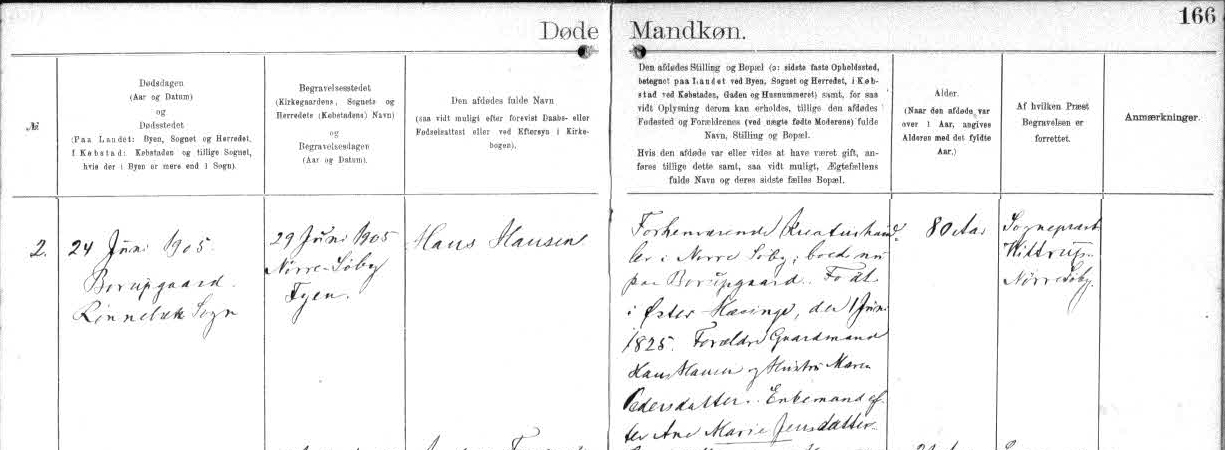 166
Døde Mandkøn.
№
Dødsdagen
(Aar og Datum)
og
Dødsstedet
(Paa Landet: Byen, Sognet og Herredet,
i Købstad: Købstaden og tillige Sognet,
hvis der i Byen er mere end 1 Sogn).
Begravelsesstedet
(Kirkegaardens, Sognets og
Herredets (Købstadens) Navn)
og
Begravelsesdagen
(Aar og Datum).
Den afdødes fulde Navn
(saa vidt muligt efter forevist Daabs- eller
Fødselsattest eller ved Eftersyn i Kirke-
bogen).
Den afdødes Stilling og Bopæl (ɔ: sidste faste Opholdssted,
betegnet paa Landet ved Byen, Sognet og Herredet, i Køb-
stad ved Købstaden, Gaden og Husnummeret) samt, for saa
vidt Oplysning derom kan erholdes, tillige den afdødes
Fødested og Forældrenes (ved uægte fødte Moderens) fulde
Navn, Stilling og Bopæl.
Hvis den afdøde var eller vides at have været gift, an-
føres tillige dette samt, saa vidt muligt, Ægtefællens
fulde Navn og deres sidste fælles Bopæl.
Alder.
(Naar den afdøde var
over 1 Aar, angives
Alderen med det fyldte
Aar.)
Af hvilken Præst
Begravelsen er
forrettet.
Anmærkninger.
2.
24 Juni 1905.
Borupgaard.
Rønnebæk Sogn
29 Juni 1905
Nørre-Søby
Fyen.
Hans Hansen
Forhenværende Kreaturhand-
ler i Nørre Søby, boed nu
paa Borupgaard. Født
i Øster Hæsinge, den 1 Juni
1825. Forældre Gaardmand
Hans Hansen og Hustru Maren
Pedersdatter. Enkemand ef-
ter Ane Marie Jensdatter.
80 Aar
Sognepræst
Wittrup
Nørre Søby.